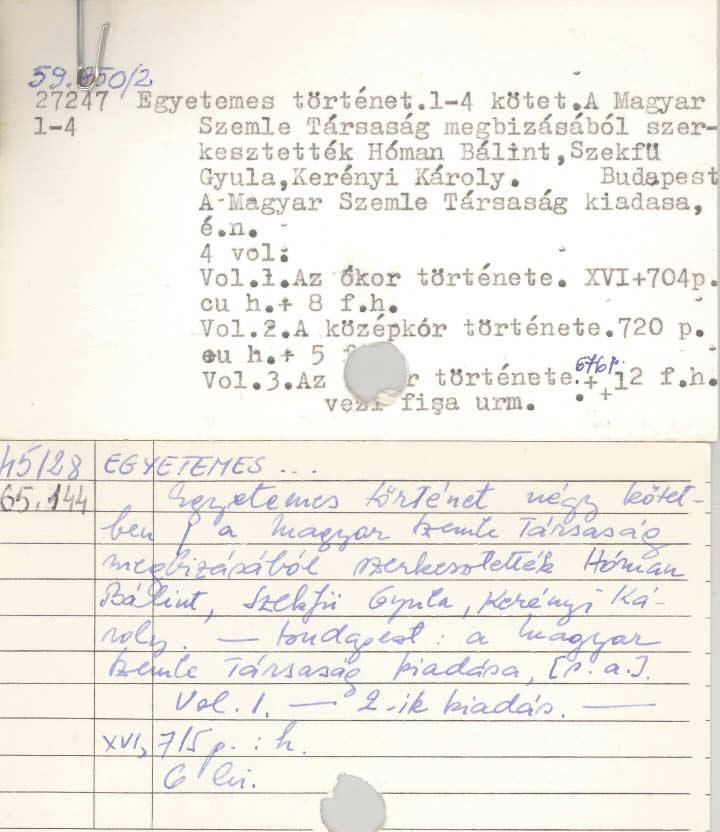 59.850/2
27247 Egyetemes történet.1-4 kötet.A Magyar
1-4 Szemle Társaság megbizásából szer-
kesztették Hóman Bálint,Szekfü
Gyula,Kerényi Károly. Budapest
A Magyar Szemle Társaság kiadasa,
é.n.
4 vol:
Vol.1.Az ókor története. XVI+704p.
cu h.+ 8 f.h.
Vol.2.A középkór története.720 p.
cu h.+ 5 f
Vol.3.Az r története.676p.++12 f.h.
vezi fişa urm.
45/28 EGYETEMES ...
65.144 Egyetemes történet négy kötet-
ben / a Magyar Szemle Társaság
megbizásából szerkesztették Hóman
Bálint, Szekfü Gyula, Kerényi Ká-
roly. — Budapest : a Magyar
Szemle Társaság kiadása, [s.a.].
Vol. 1. — 2-ik kiadás. —
XVI, 715 p. : h.
6 lei.